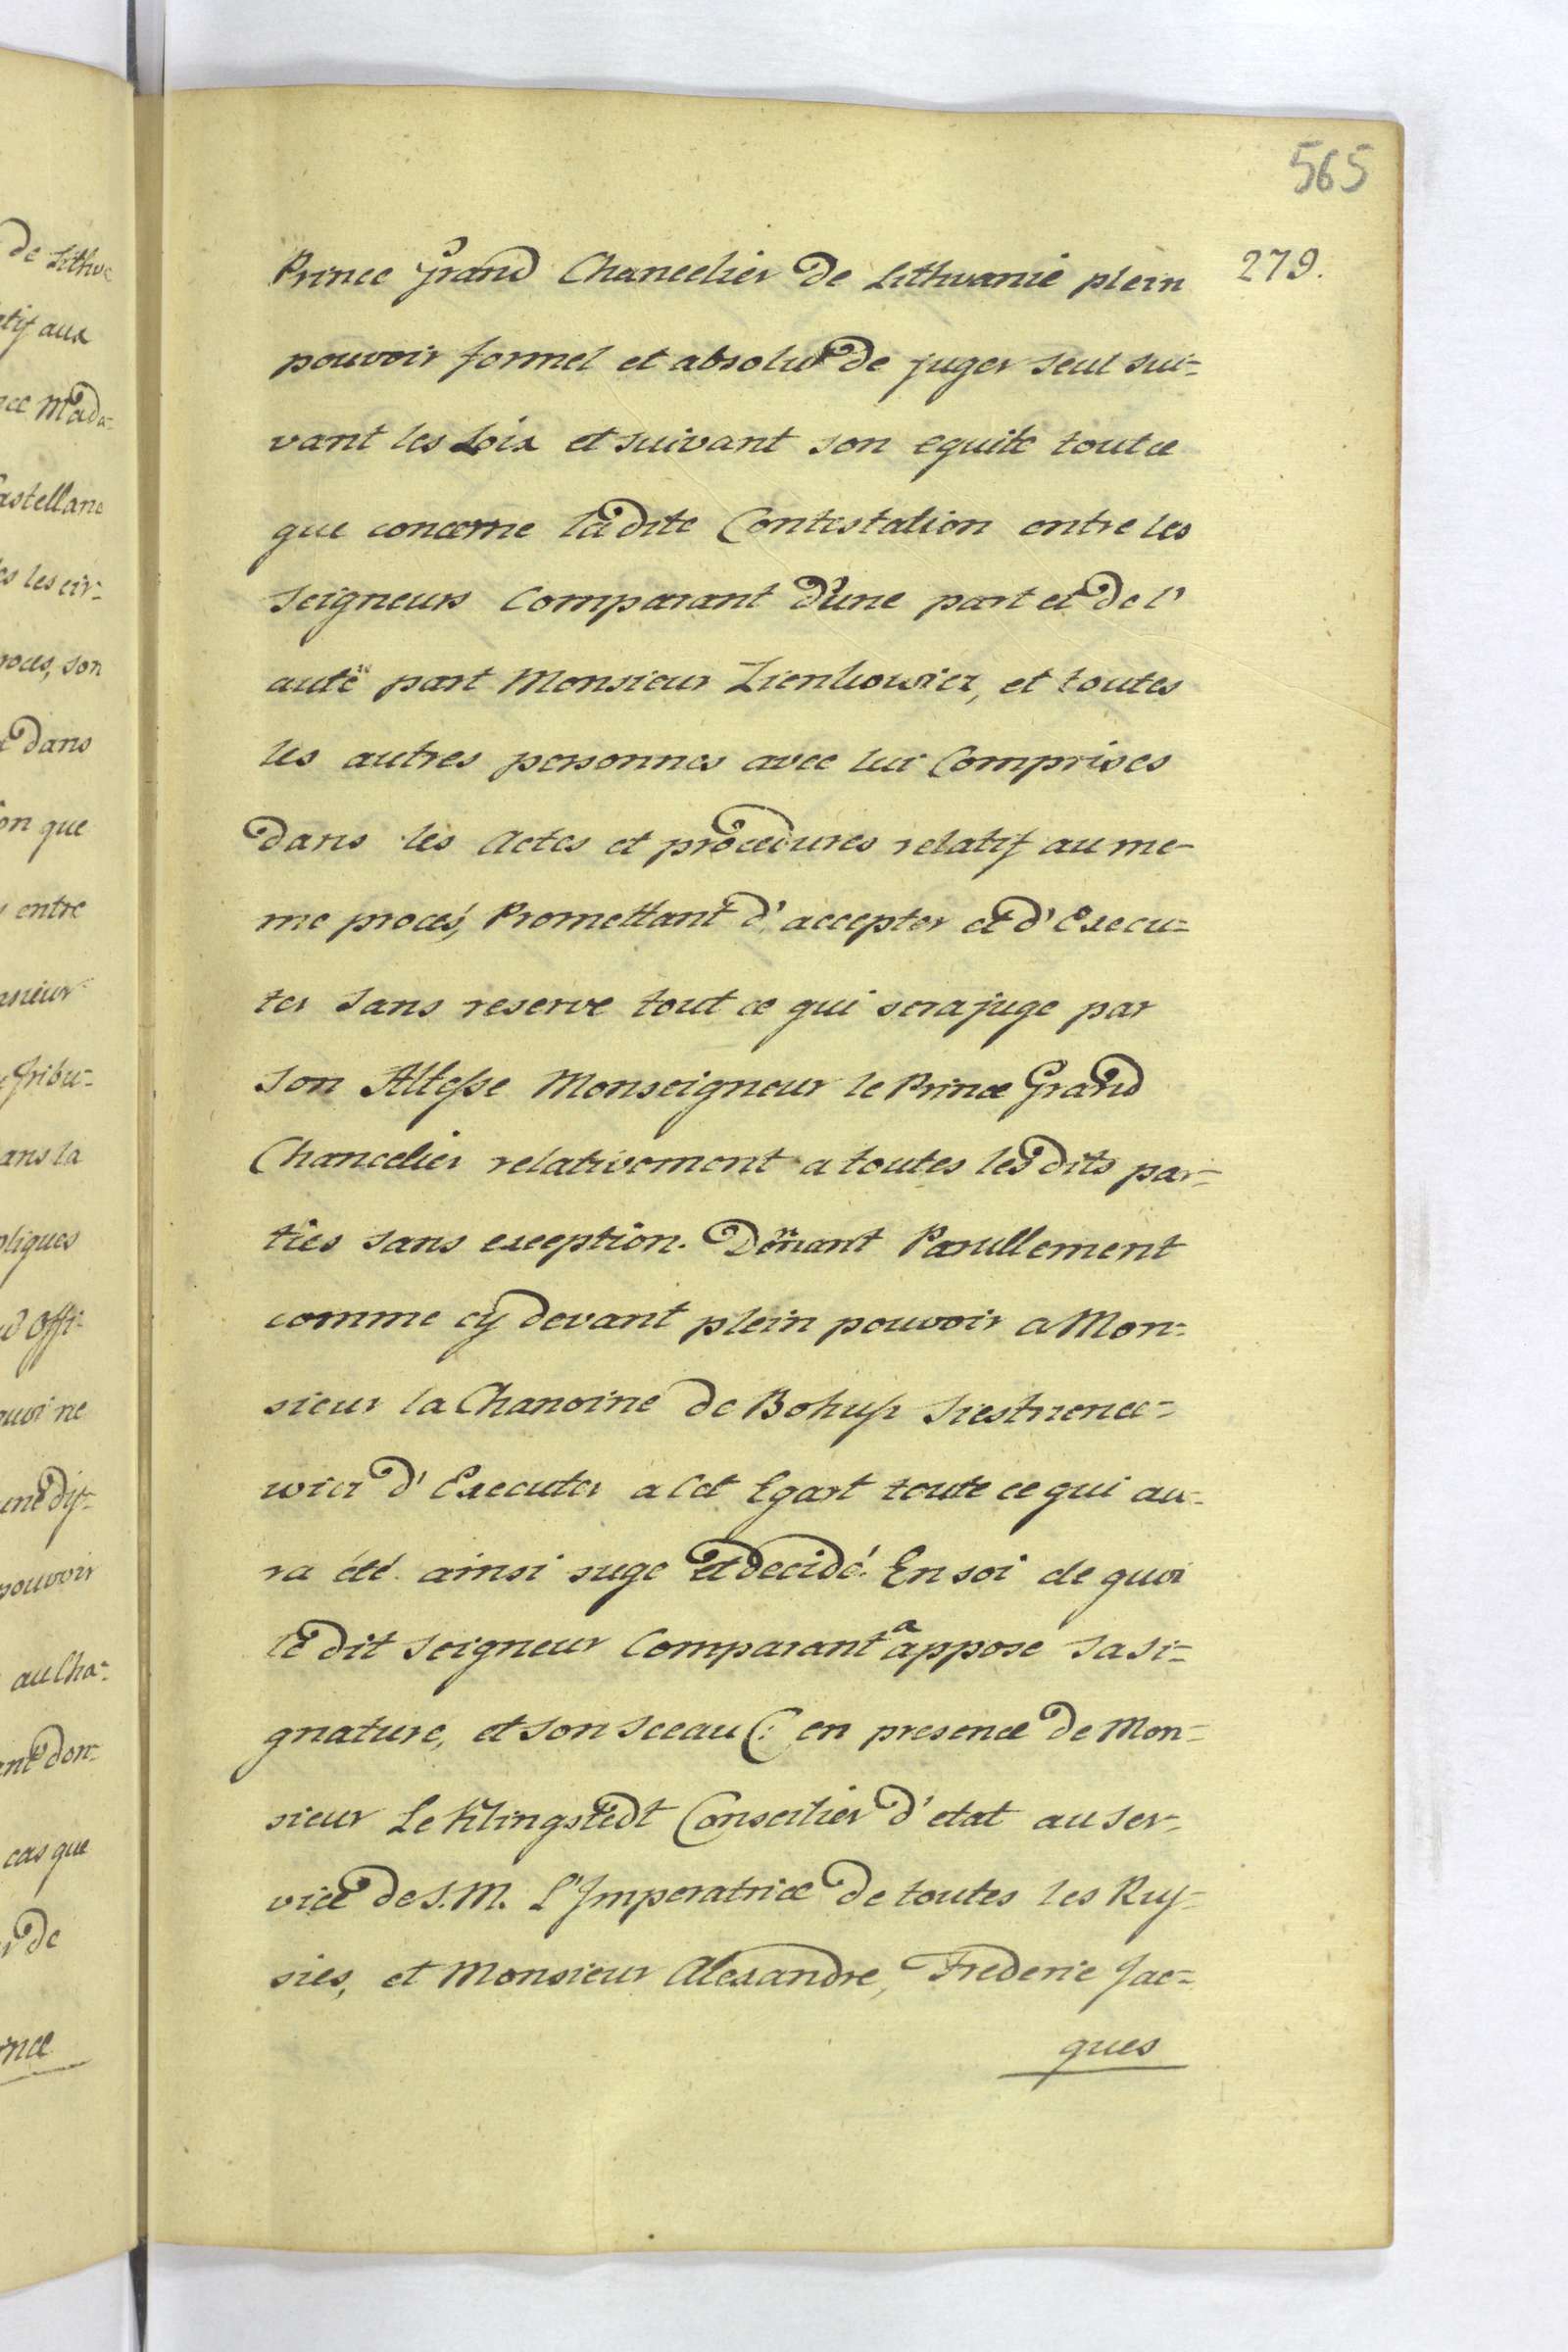 565
279.
Prince Grand Chancelier de Lithuanie plein
pouvoir formel et absolut de juger seul sui=
vant les Loix et suivant son equite tout ce
que concerne la dite Contestation entre les
Seigneurs Comparant d'une part et de l'
autre part Monsieur Zienkowicz, et toutes
les autres personnes avec lui Comprises
dans les Actes et procedures relatif au me-
me procés, Promettant d'accepter et d'Execu=
ter Sans reserve tout ce qui sera juge par
Son Altesse Monseigneur le Prince Grand
Chancelier relativement a toutes les dits par=
ties sans exception. Doñant Parullement
comme cy devant plein pouvoir a Mon=
sieur la Chanoine de Bohusz Siestrzence=
wicz d'Executer a Cet Egart toute ce qui au=
ra été ainsi juge et decidé. En soi de quoi
le dit Seigneur Comparant a appose Sa Si=
gnature, et son Sceau (: en presence de Mon=
sieur Le Klingstedt Conseilier d'etat au Ser=
vice de S. M. l'Imperatrice de toutes les Rus=
sies, et Monsieur Alexandre, Frederic Jac=
ques
de Lithu
tif aux
Mada=
astellane
les cir=
son
dans
on que
entre
sieur
Tribu=
ans la
pliques
Offi=
quoi ne
une dis=
pouvoir
au Cha=
don=
cas que
de
ince